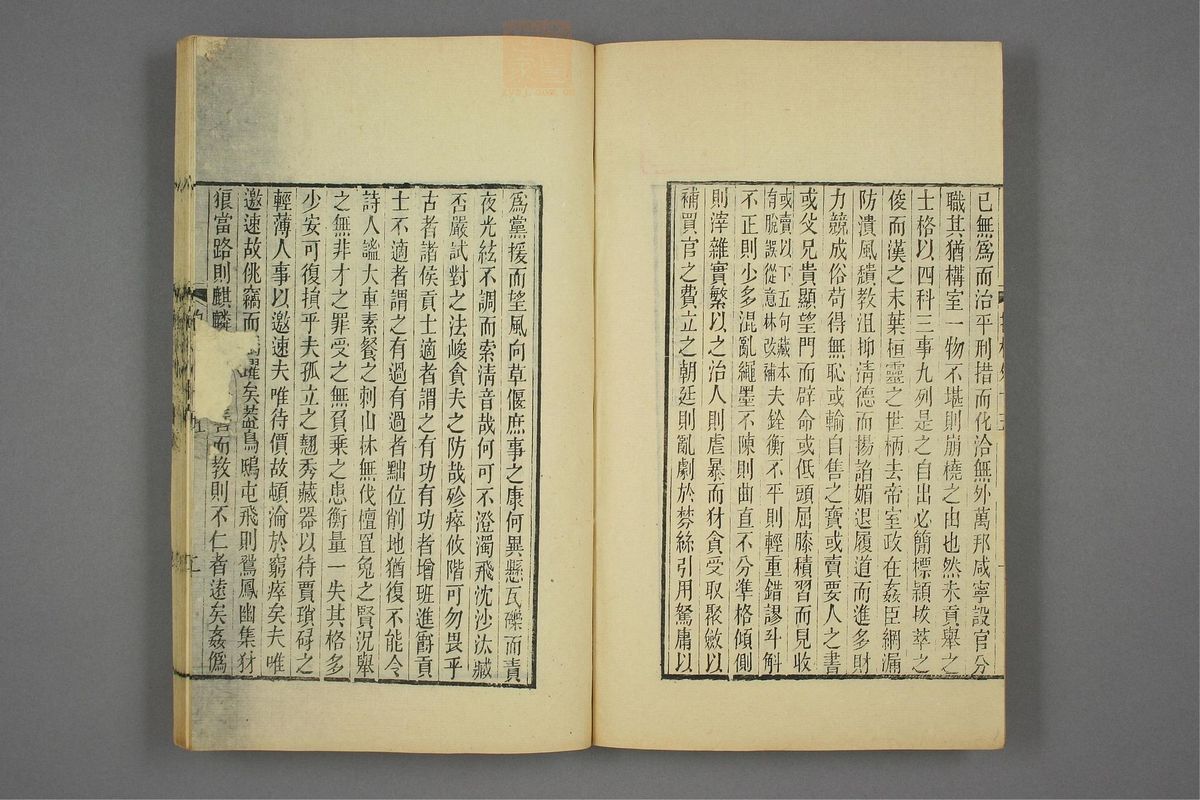 已無爲而治平刑措而化洽無外萬邦咸寧設官分
職其猶構室一物不堪則崩橈之由也然夫貢舉之
士格以四科三事九列是之自出必簡標穎拔萃之
俊而漢之末葉桓靈之世柄去帝室政在姦臣網漏
防潰風穨教沮抑清德而揚諂媚退履道而進多財
力競成俗苟得無恥或輸自售之寶或賣要人之書
或父兄貴顯望門而辟命或低頭屈膝積習而見收
或賣以下五句藏本
有脫誤從意林改補夫銓衡不平則輕重錯謬斗斛
不正則少多混亂繩墨不陳則曲直不分準格傾側
則滓雜實繁以之治人則虐暴而豺貪受取聚斂以
補買官之費立之朝廷則亂劇於棼絲引用駑庸以
爲黨援而望風向草偃庶事之康何異懸瓦礫而責
夜光絃不調而索清音哉何可不澄濁飛沈沙汰臧
否嚴試對之法峻貪夫之防哉殄瘁攸階可勿畏乎
古者諸侯貢士適者謂之有功有功者增班進爵貢
士不適者謂之有過有過者黜位削地猶復不能令
詩人謐大車素餐之刺山林無伐檀罝兔之賢況舉
之無非才之罪受之無負乘之患衡量一失其格多
少安可復損乎夫孤立之翹秀藏器以待賈瑣碌之
輕薄人事以邀速夫唯待價故頓淪於窮瘁矣夫唯
邀速故佻竊而躍矣蓋鳥鴟屯飛則鴛鳳幽集豺
狼當路則麒麟善而教則不仁者遠矣姦僞